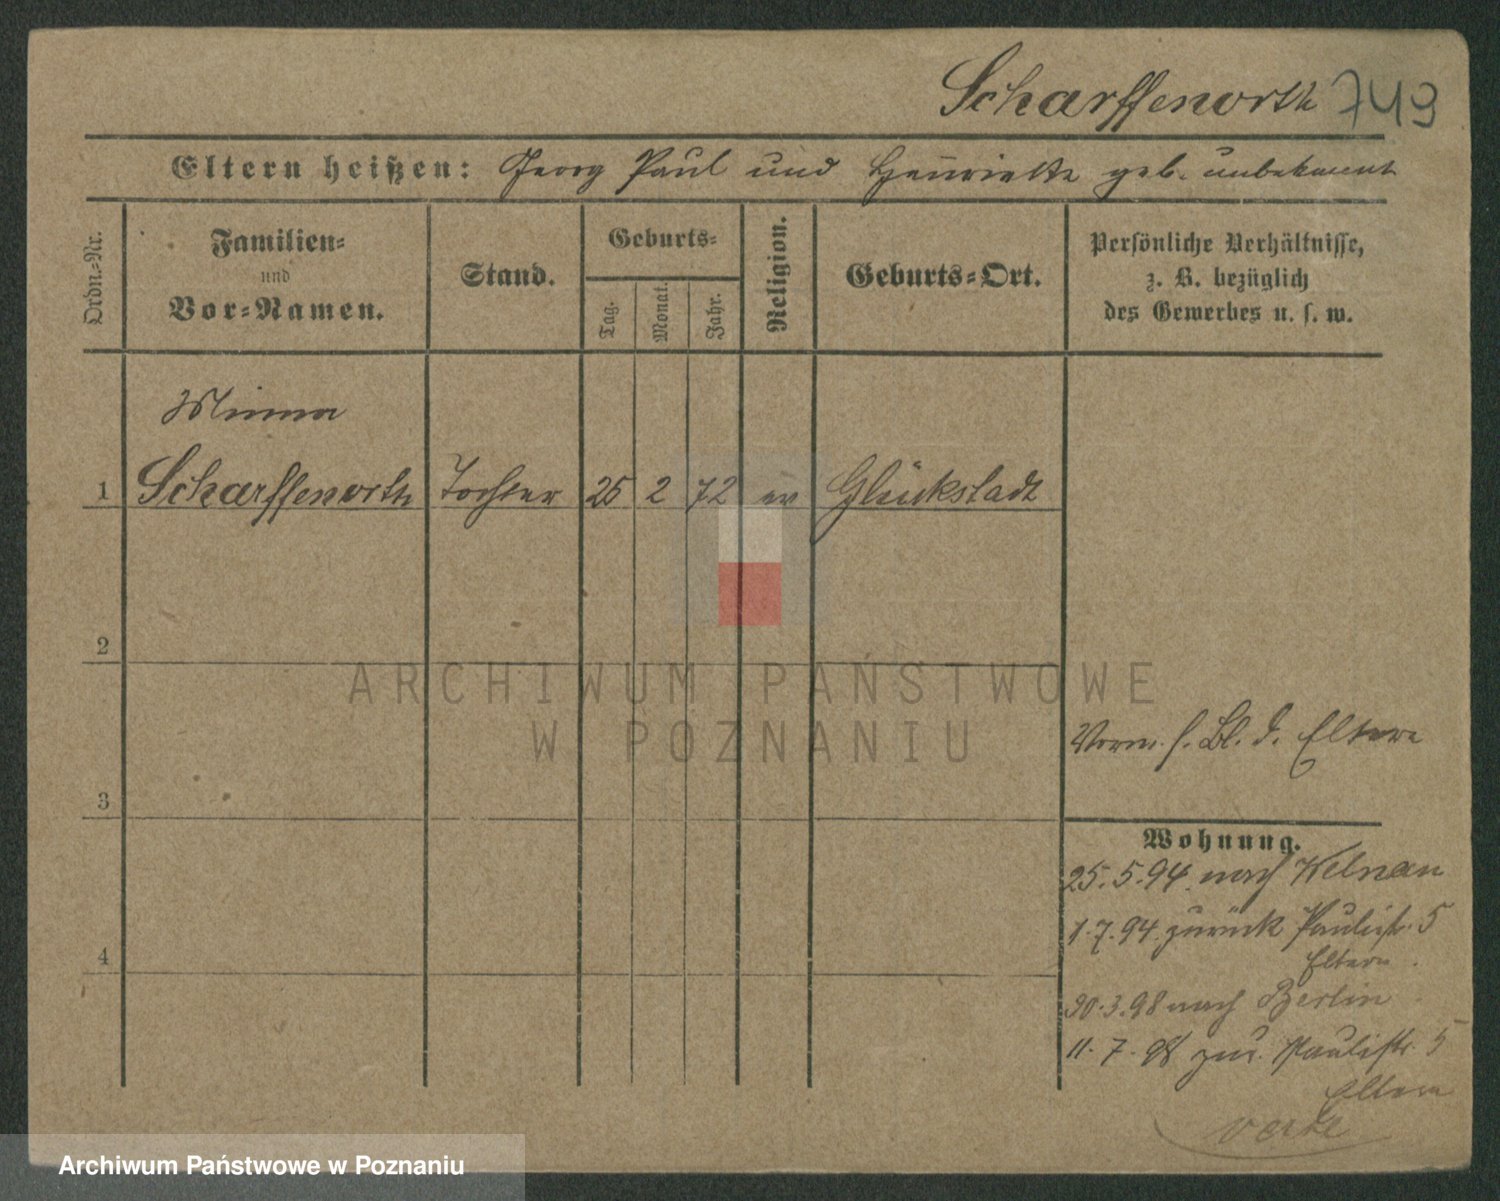 Scharffenorth 749
Eltern heißen: Georg Paul und Henriette geb. unbekannt
Ordn.-Nr.
Familien-
und
Vor-Namen.
Stand.
Geburts-
Tag.
Monat.
Jahr.
Religion.
Geburts-Ort.
Persönliche Verhältnisse,
z. B. bezüglich
des Gewerbes u. s. w.
Minna
1 Scharffenorth Tochter 25 2 72 ev Glückstadt
2
ARCHIWUM PAŃSTWOWE
W POZNANIU
Vorm. s. Bl. d. Eltern
3
Wohnung.
25.5.94. nach Welnau
1.7.94. zurück Paulistr. 5
Eltern
4
30.3.98 nach Berlin
11.7.98 zur. Paulistr. 5
Eltern
Archiwum Państwowe w Poznaniu